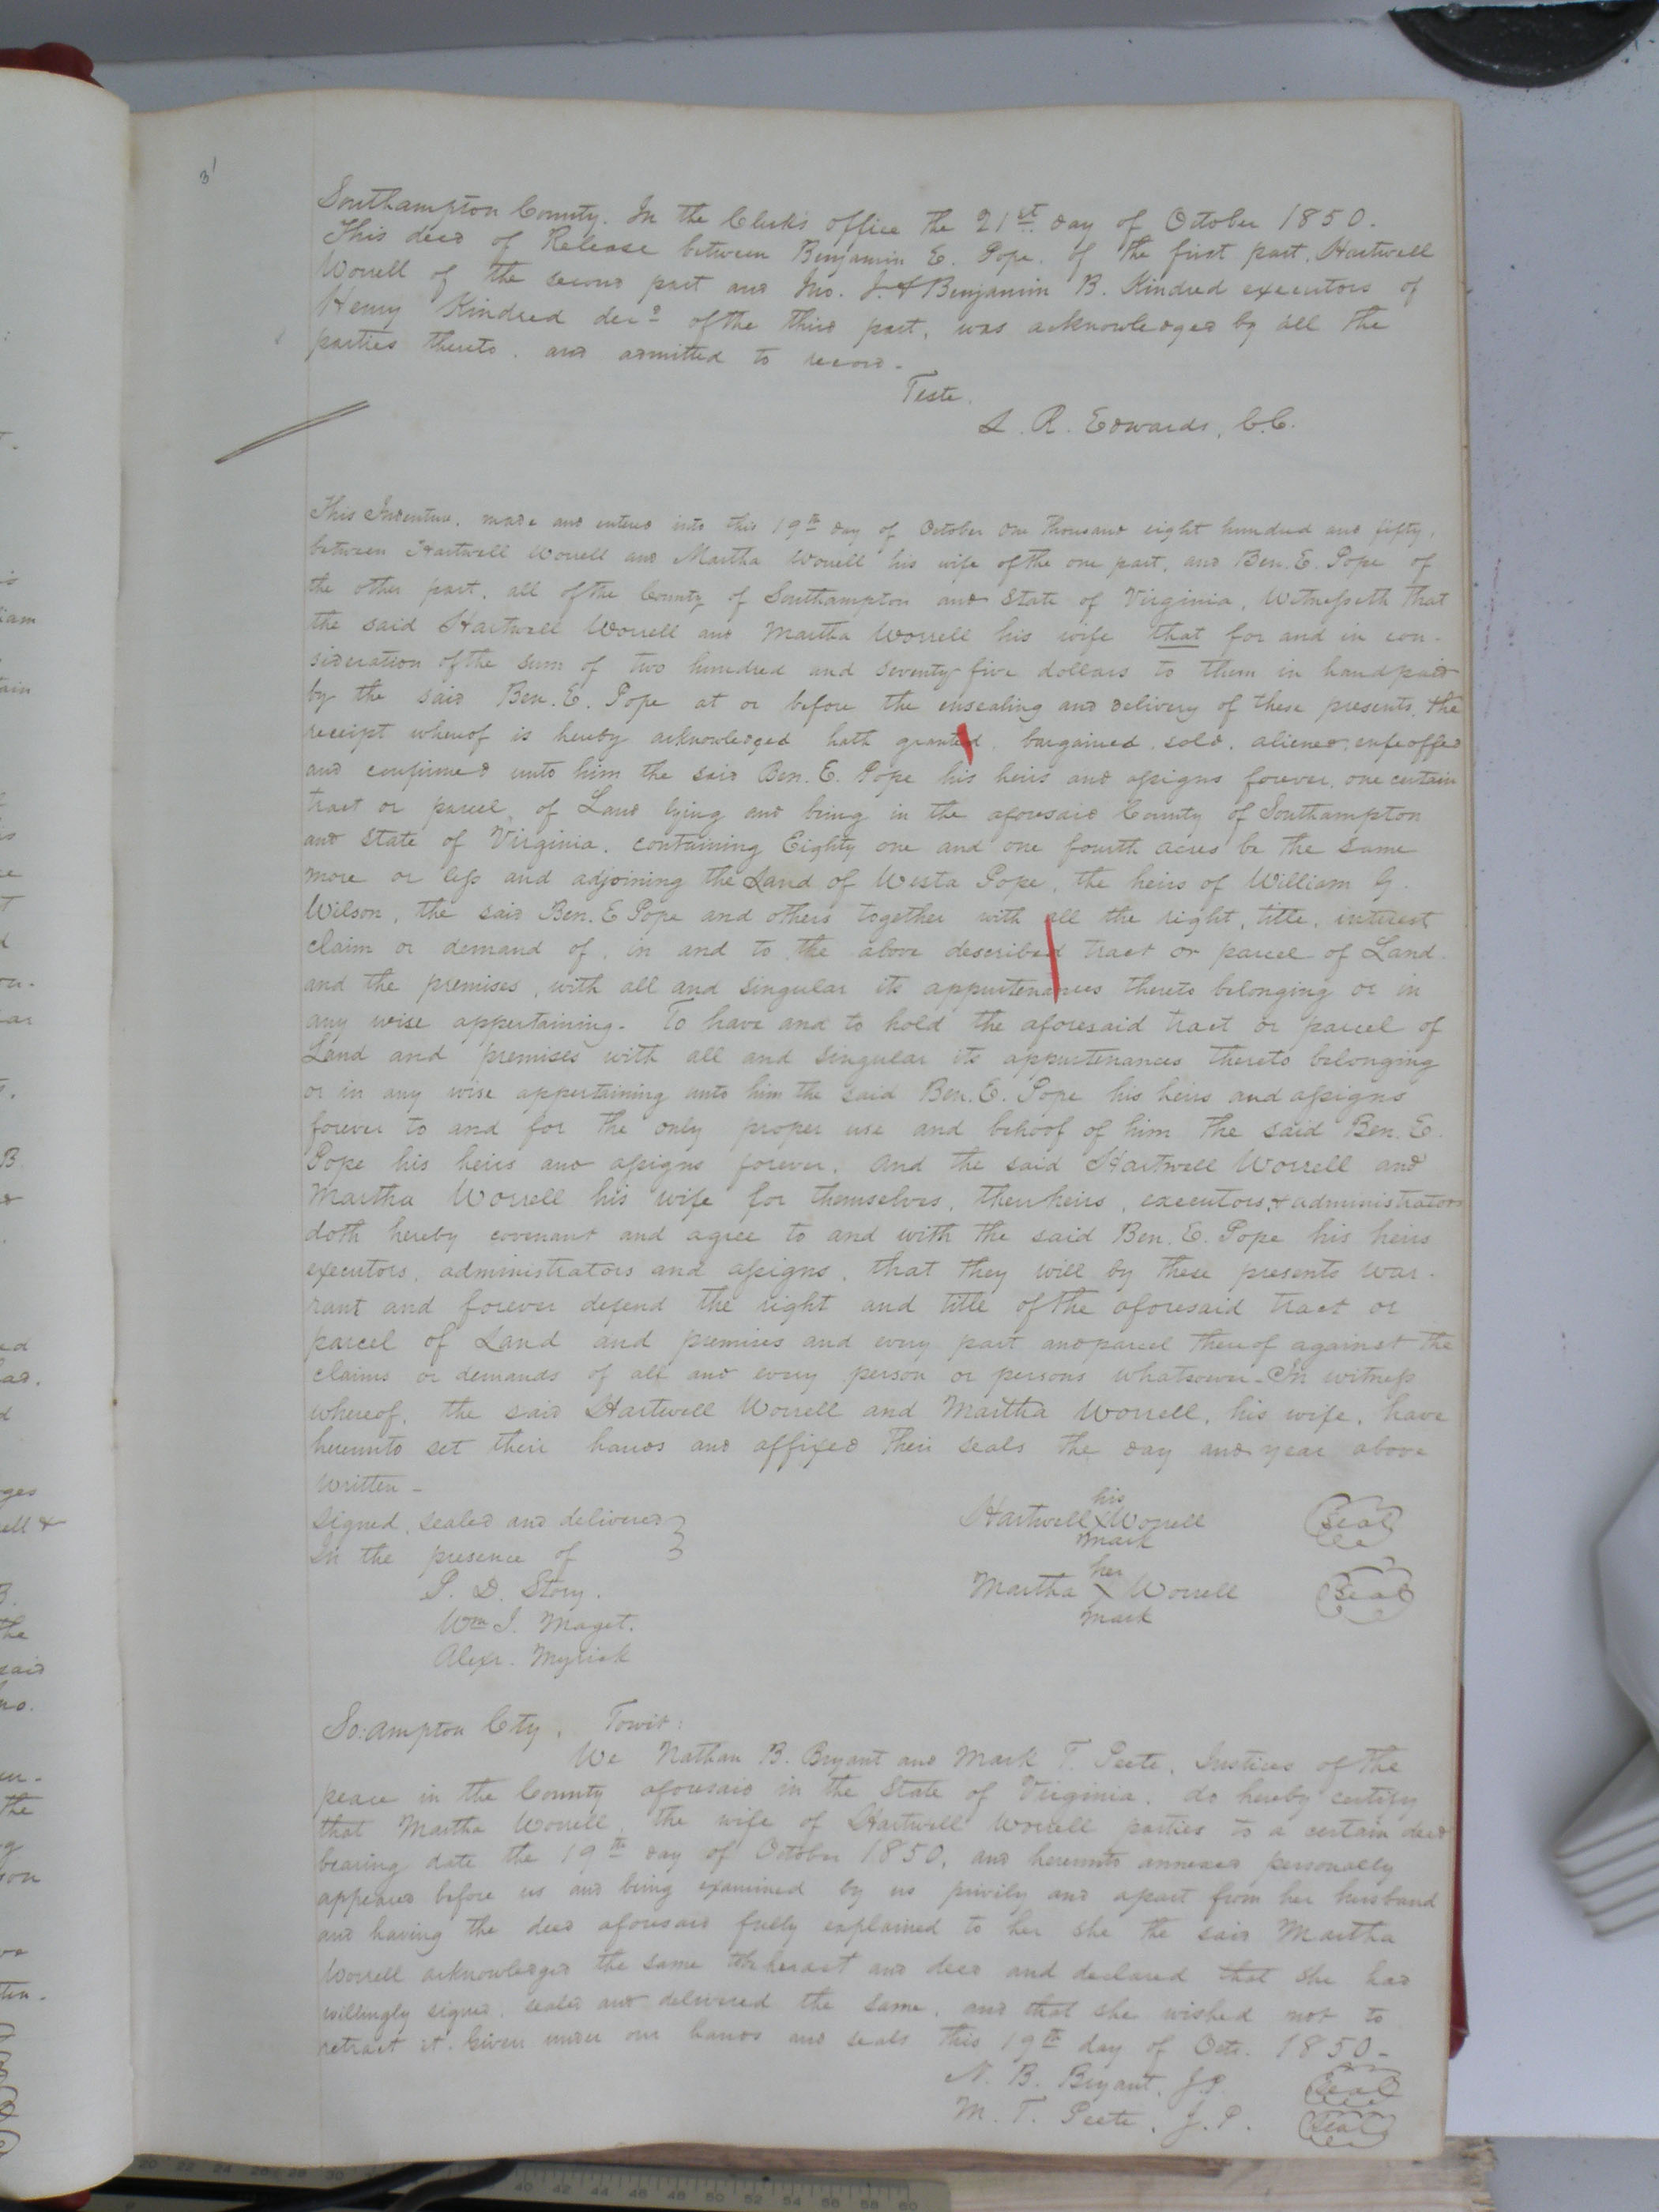 31
Southampton County. In the Clerk's office the 21st day of October 1850.
This deed of Release between Benjamin E. Pope. of the first part, Hartwell
Worrell of the second part and Jno. J. & Benjamin B. Kindred executors of
Henry Kindred decd of the third part, was acknowledged by all the
parties thereto. and admitted to record.
Teste.
L. R. Edwards, C.C.
This Indenture, made and entered into this 19th day of October one thousand eight hundred and fifty,
between Hartwell Worrell and Martha Worrell his wife of the one part, and Ben. E. Pope of
the other part, all of the County of Southampton and State of Virginia, Witnesseth That
the said Hartwell Worrell and Martha Worrell his wife that for and in con-
sideration of the sum of two hundred and seventy five dollars to them in hand paid
by the said Ben. E. Pope at or before the ensealing and delivery of these presents, the
receipt whereof is hereby acknowledged hath granted, bargained, sold, aliened, enfeoffed
and confirmed unto him the said Ben. E. Pope his heirs and assigns forever, one certain
tract or parcel of Land lying and being in the aforesaid County of Southampton
and State of Virginia, containing Eighty one and one fourth acres be the same
more or less and adjoining the Land of Westa Pope, the heirs of William G.
Wilson, the said Ben. E Pope and others together with all the right, title, interest
claim or demand of, in and to the above described tract or parcel of Land
and the premises, with all and singular its appurtenances thereto belonging or in
any wise appertaining. To have and to hold the aforesaid tract or parcel of
Land and premises with all and singular its appurtenances thereto belonging
or in any wise appertaining unto him the said Ben. E. Pope his heirs and assigns
forever to and for the only proper use and behoof of him the said Ben. E.
Pope his heirs and assigns forever. And the said Hartwell Worrell and
Martha Worrell his wife for themselves, their heirs, executors & administrators
doth hereby covenant and agree to and with the said Ben. E. Pope his heirs
executors, administrators and assigns, that they will by these presents war-
rant and forever defend the right and title of the aforesaid tract or
parcel of Land and premises and every part and parcel thereof against the
claims or demands of all and every person or persons whatsoever. In witness
whereof, the said Hartwell Worrell and Martha Worrell, his wife, have
hereunto set their hands and affixed their seals the day and year above
written-
Signed, sealed and delivered
In the presence of
P. D. Story.
Wm J. Maget.
Alexr. Myrick
his
Hartwell X Worrell Seal
mark
her
Martha X Worrell Seal
mark
So:ampton Cty, Towit:
We Nathan B. Bryant and Mark T. Peete, Justices of the
peace in the County aforesaid in the State of Virginia, do hereby certify
that Martha Worrell, the wife of Hartwell Worrell parties to a certain deed
bearing date the 19th day of October 1850, and hereunto annexed personally
appeared before us and being examined by us privily and apart from her husband
and having the deed aforesaid fully explained to her she the said Martha
Worrell acknowledged the same to be her act and deed and declared that she had
willingly signed, sealed and delivered the same, and that she wished not to
retract it. Given under our hands and seals this 19th day of Octr. 1850-
N. B. Bryant, J.P. Seal
M. T. Peete, J.P. Seal